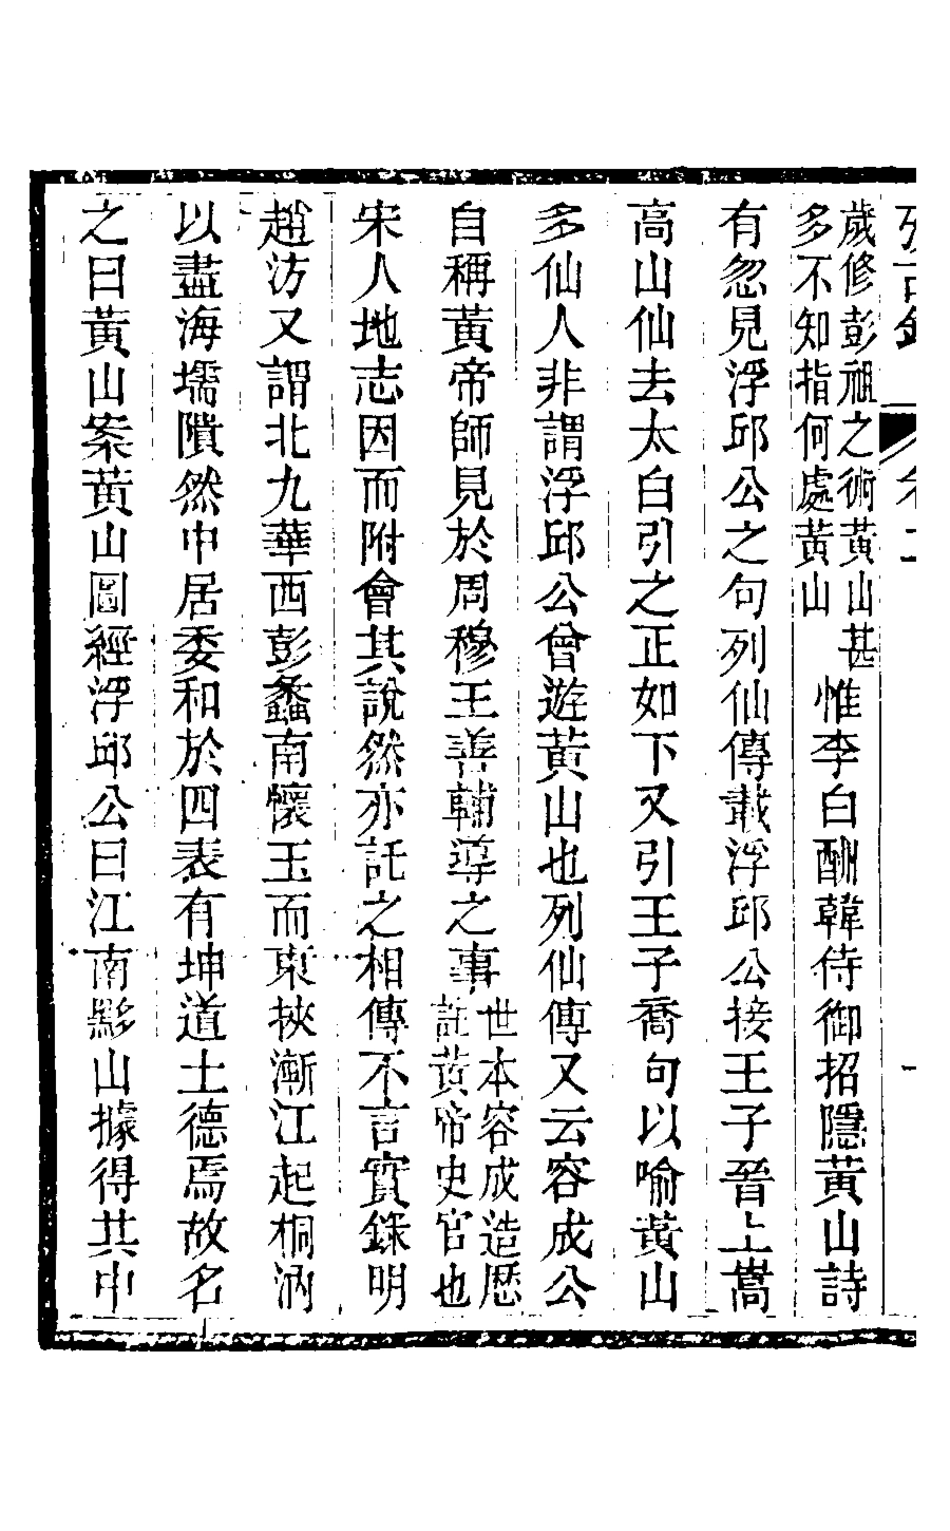 歲修彭祖之術黃山甚
多不知指何處黃山
惟李白酬韓侍御招隱黃山詩
有忽見浮邱公之句列仙傳載浮邱公接王子晉上嵩
高山仙去太白引之正如下又引王子喬句以喻黃山
多仙人非謂浮邱公曾遊黃山也列仙傳又云容成公
自稱黃帝師見於周穆王善輔導之事
世本容成造歷
註黃帝史官也
宋人地志因而附會其說然亦託之相傳不言實錄明
趙汸又謂北九華西彭蠡南懷玉而東挾漸江起桐汭
以盡海壖隤然中居委和於四表有坤道土德焉故名
之曰黃山案黃山圖經浮邱公曰江南黟山據得其中